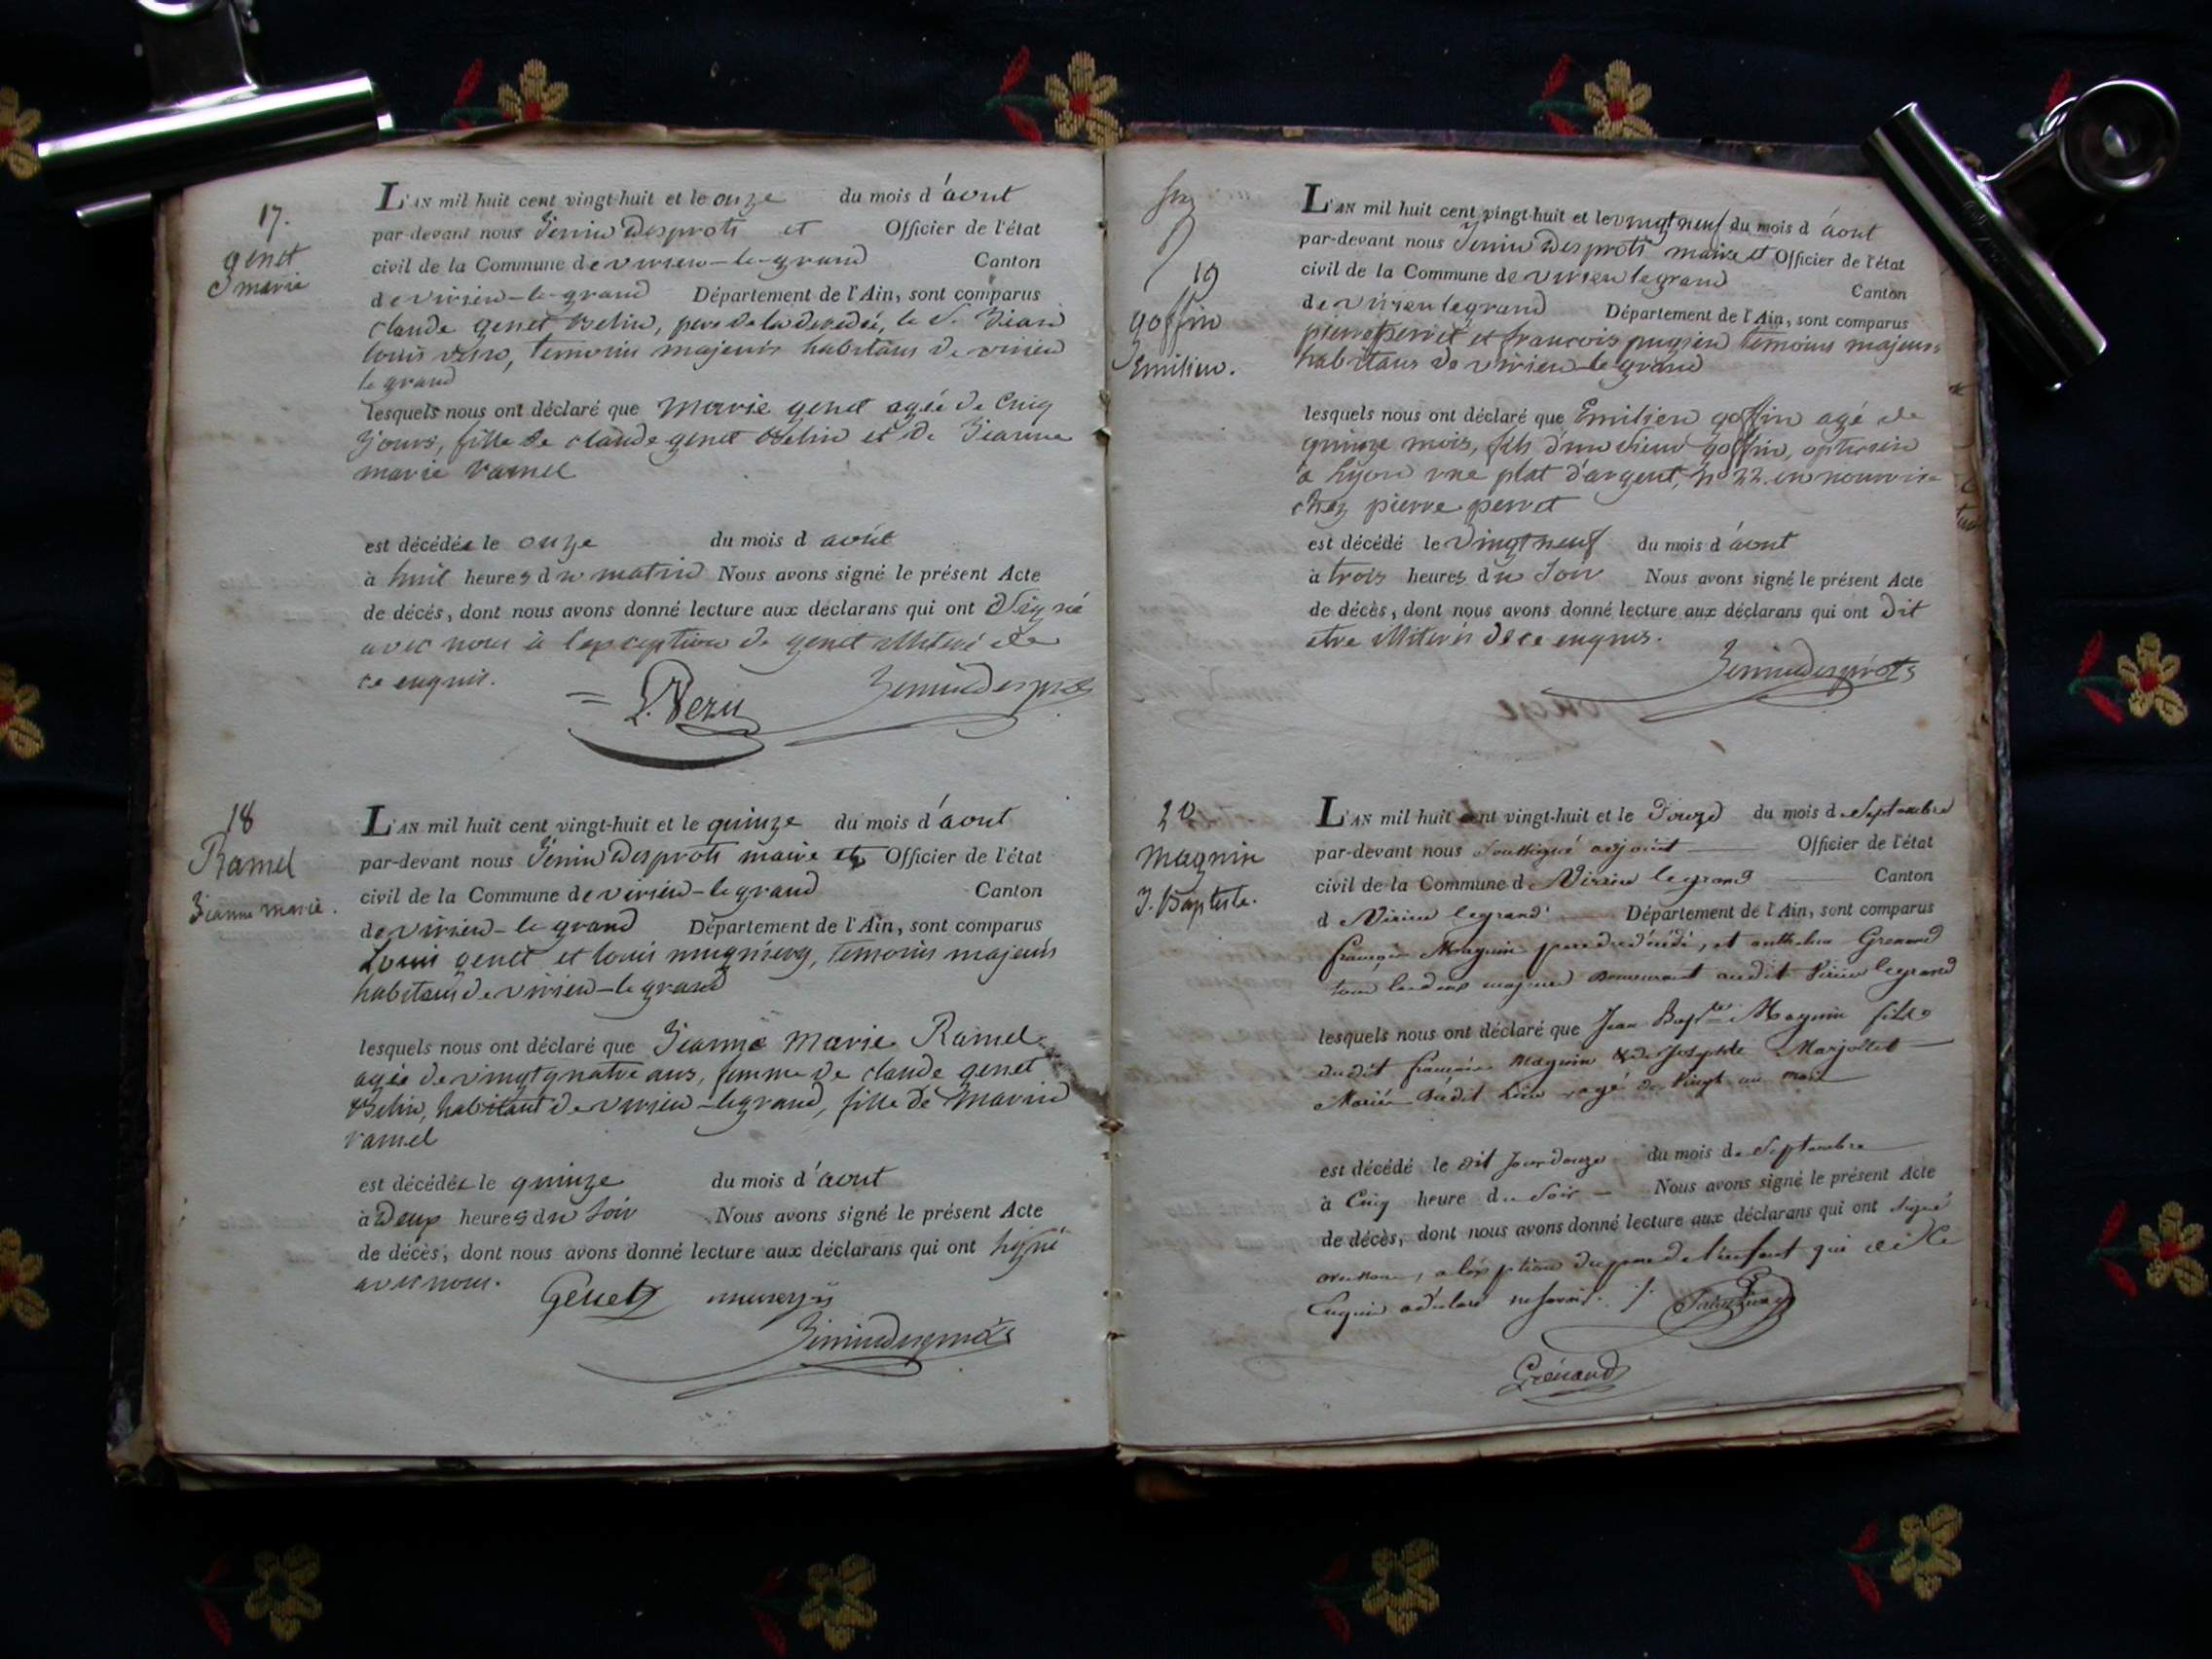 17.
genet
marie
L'AN mil huit cent vingt-huit et le onze du mois d'aout
par-devant nous Jenin Desprots et Officier de l'état
civil de la Commune de virieu-le-grand Canton
de virieu-le-grand Département de l'Ain, sont comparus
claude genet Belin, pere de la decedée, le S. Jean
louis temoins majeurs habitans de virieu
le grand
lesquels nous ont déclaré que marie genet agée de cinq
jours, fille de claude genet Belin et de Jeanne
marie ramel
est décédée le onze du mois d aout
à huit heures du matin Nous avons signé le présent Acte
de décès, dont nous avons donné lecture aux déclarans qui ont signé
avec nous à l'exception de genet illiteré de
ce enquis.
Jenin Desprots
18
Ramel
Jeanne marie.
L'AN mil huit cent vingt-huit et le quinze du mois d'aout
par-devant nous Jenin Desprots maire et Officier de l'état
civil de la Commune de virieu-le grand Canton
de virieu-le grand Département de l'Ain, sont comparus
Louis genet et louis mugniery, temoins majeurs
habitans de virieu-le grand
lesquels nous ont déclaré que Jeanne Marie Ramel
agée de vingt quatre ans, femme de claude genet
Belin, habitant de virieu-legrand, fille de Marin
ramel
est décédée le quinze du mois d'aout
à Deux heures du soir Nous avons signé le présent Acte
de décès, dont nous avons donné lecture aux déclarans qui ont signé
avec nous.
Genet
Jenin Desprots
19
goffin
Emilien.
L'AN mil huit cent vingt-huit et le vingt neuf du mois d'aout
par-devant nous Jenin Desprots maire et Officier de l'état
civil de la Commune de virieu legrand
Canton
de virieu legrand Département de l'Ain, sont comparus
pierre perret et francois pugieu temoins majeurs
habitans de virieu-le grand
lesquels nous ont déclaré que Emilien goffin agé de
quinze mois, fils d'un sieur goffin, opticien
à lyon rue plat d'argent, No 22. en nourrice
chez pierre perret
est décédé le vingt neuf du mois d'aout
à trois heures du soir Nous avons signé le présent Acte
de décès, dont nous avons donné lecture aux déclarans qui ont dit
etre illiterés de ce enquis.
Jenin Desprots
20
Magnin
J. Baptiste.
L'AN mil huit cent vingt-huit et le Douze du mois de Septembre
par-devant nous soussigné adjoint Officier de l'état
civil de la Commune de Virieu legrand Canton
de Virieu legrand Département de l'Ain, sont comparus
françois Magnin pere du décédé, et anthelme Grenand
tous les deux majeurs demeurant audit Virieu legrand
lesquels nous ont déclaré que Jean Bapte Magnin fils
dudit françois Magnin & de Josephte Marjollet
Mariés dudit lieu agé de Vingt un mois
est décédé le dit jour douze du mois de Septembre
à Cinq heure du soir Nous avons signé le présent Acte
de décès, dont nous avons donné lecture aux déclarans qui ont signé
avec nous, a l'exption du pere de l'enfant qui de ce
Enquis a déclaré ne savoir.
Grenand